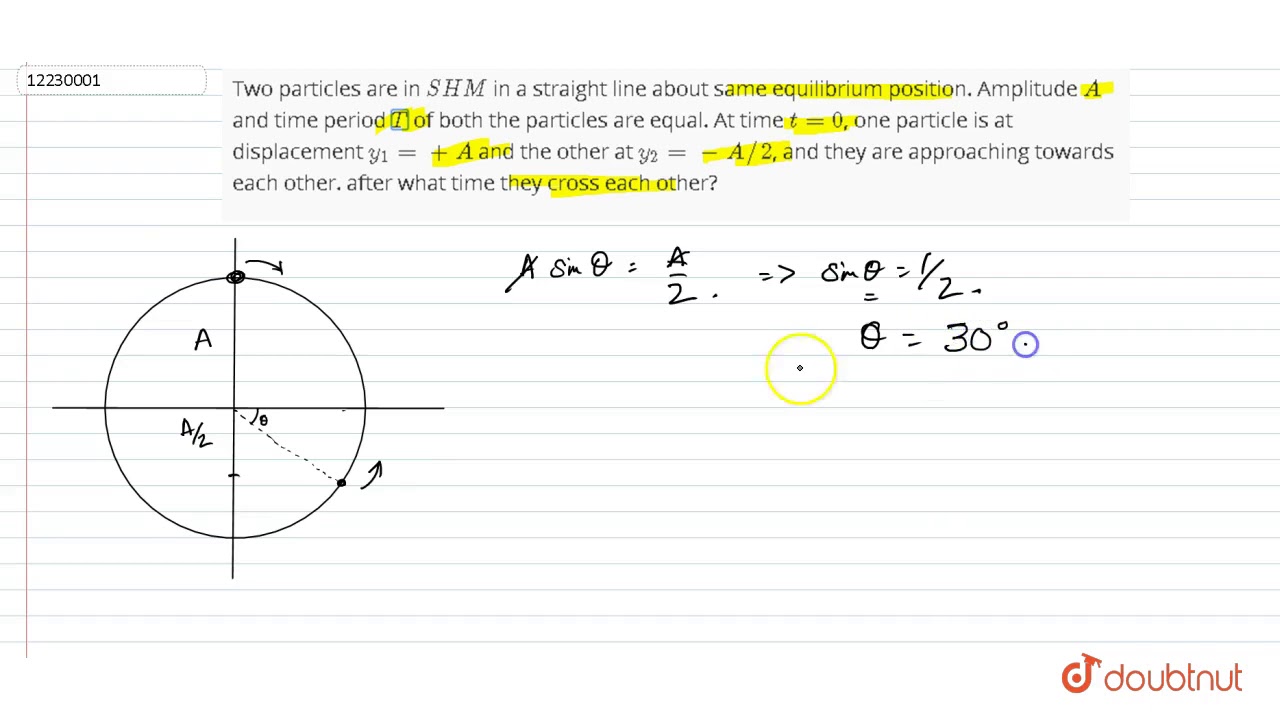 12230001
Two particles are in SHM in a straight line about same equilibrium position. Amplitude A
and time period T of both the particles are equal. At time t = 0, one particle is at
displacement y₁ = + A and the other at y₂ = − A/2, and they are approaching towards
each other. after what time they cross each other?
A sin θ = A/2 . => sin θ = 1/2 .
θ = 30°
A
A/2
θ
doubtnut